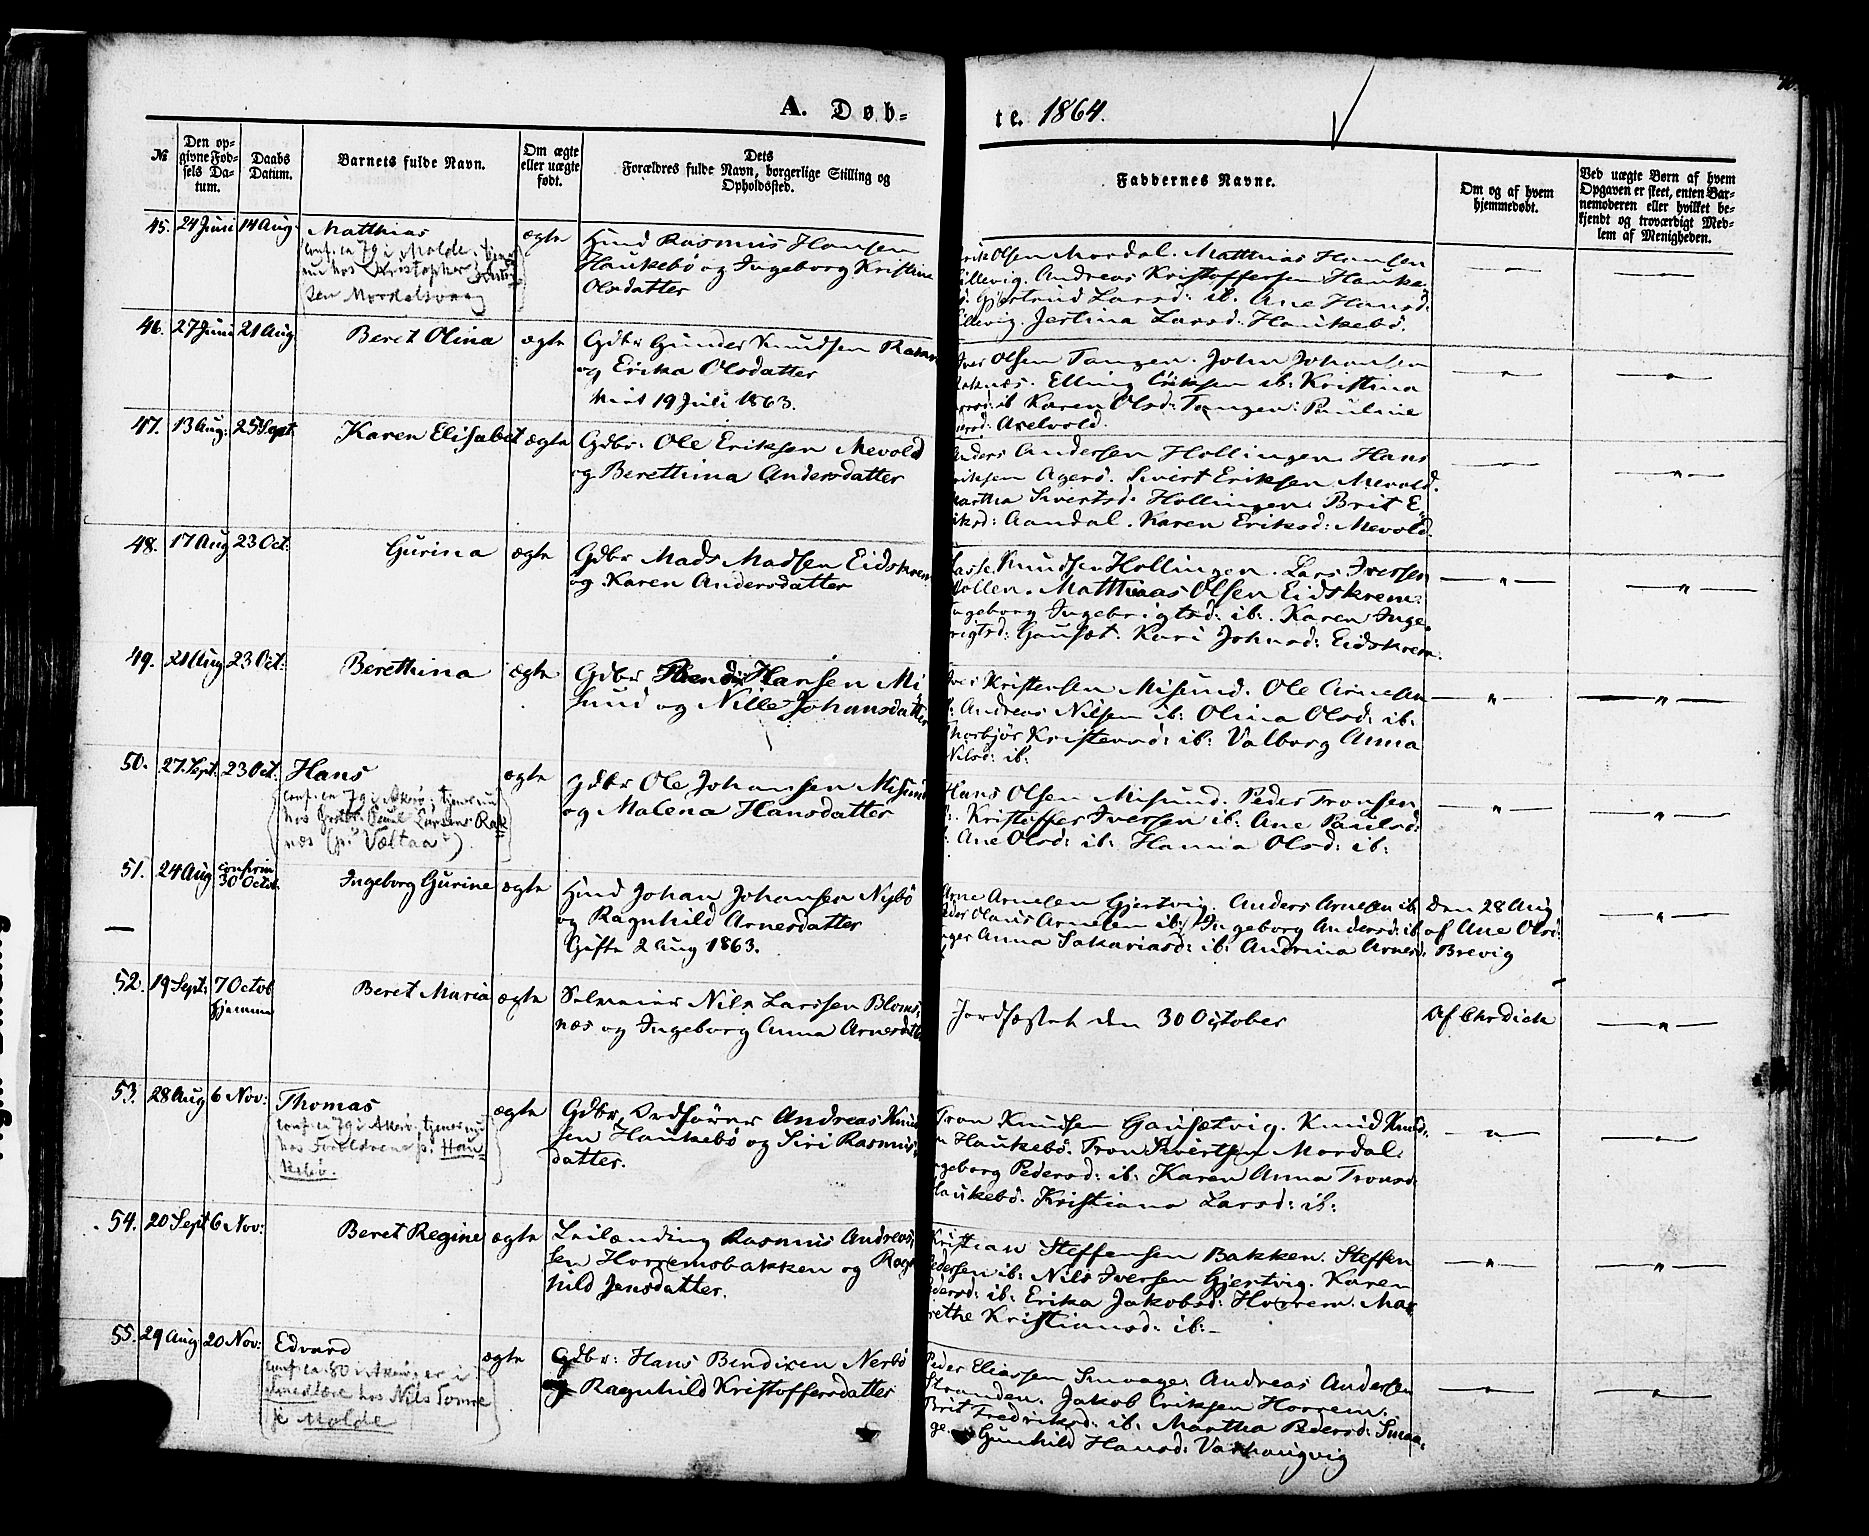 A. Døb-
te. 1864.
№
Den op-
givne Fød-
sels Da-
tum.
Daabs
Datum.
Barnets fulde Navn.
Om ægte
eller uægte
født.
Dets
Forældres fulde Navn, borgerlige Stilling og
Opholdssted.
Faddernes Navne.
Om og af hvem
hjemmedøbt.
Ved uægte Børn af hvem
Opgaven er skeet, enten Bar-
nemoderen eller hvilket be-
kjendt og troværdigt Med-
lem af Menigheden.
45. 24 Juni 14 Aug. Matthias ægte Huusd Rasmus Hansen
Haukebø og Ingeborg Kristine
Olsdatter
conf. ca 79 i Molde, tjener
nu hos Kristopher
sen Mordalsvaag
Erik Olsen Mordal. Matthias Hansen
Lillevig. Andreas Kristoffersen Hauke-
bø. Gjertrud Larsd: ib. Ane Hansd:
Lillevig. Jertina Larsd. Haukebø.
46. 27 Juni 21 Aug Beret Olina ægte Gdbr Gunder Knudsen Raknes
og Erika Olsdatter
viet 19 Juli 1863.
Iver Olsen Tangen. John Johansen
Raknæs. Elling Eriksen ib: Kristina
Larsd: ib Karen Olsd: Tangen: Pauline
Axelvold.
47. 13 Aug: 25 Sept Karen Elisabet ægte Gdbr. Ole Eriksen Mevold
og Berethina Andersdatter
Anders Andersen Hollingen. Hans
Eriksen Agerø. Sivert Eriksen Mevold.
Martha Sivertsd: Hollingen. Brit E-
riksd: Aandal. Karen Eriksd: Mevold.
48. 17 Aug 23 Oct: Gurina ægte Gdbr Mads Madsen Eidskrem
og Karen Andersdatter
Lasse Knudsen Hollingen. Lars Iversen
Mollen. Matthias Olsen Eidskrem:
Ingeborg Ingebrigtsd: ib: Karen Inge-
brigtsd: Gauset. Kari Johnsd: Eidskrem.
49. 21 Aug 23 Oct: Berethina ægte Gdbr Hansen Mi
sund og Nille Johansdatter
Iver Kristensen Misund. Ole Arnesen
ib. Andreas Nilsen ib: Olina Olsd: ib:
Thorbjør Kristensd: ib: Valborg Anna
Nilsd: ib:
50. 27. Sept. 23 Oct: Hans ægte Gdbr Ole Johansen Misund
og Malena Hansdatter
conf. ca 79 i Akerø; tjener nu
hos Gdbr. Paul Larsens Rak
næs (p. "Væltaa").
Hans Olsen Misund. Peder Tronsen
ib. Kristoffer Iversen ib: Ane Paulsd:
ib. Ane Olsd: ib: Hanna Olsd: ib:
51. 24 Aug confirm
30 Octbr. Ingeborg Gurine ægte Huusd Johan Johansen Nybø
og Ragnhild Arnesdatter
Gifte 2 Aug 1863.
Arne Arnesen Gjertvig. Anders Arnesen ib:
Peder Olaus Arnesen ib: Ingeborg Andersd: ib.
Inger Anna Sakariasd: ib: Andrina Arnesd:
Den 28 Aug
af Ane Olsd:
Brevig
52. 19 Sept: 7 Octob
hjemme Beret Maria ægte Selveier Nils Larssen Bloms
næs og Ingeborg Anna Arnesdatter
Jordfæstet den 30 October
Af Chr Dick
53. 28 Aug 6 Nov: Thomas ægte Gdbr, Ordfører Andreas Knud
sen Haukebø og Siri Rasmus-
datter.
conf. ca 79 i Akerø, tjener nu
hos Forældrene p. Hau-
kebø.
Tron Knudsen Gausetvig. Knud Knud-
sen Haukebø. Tron Sivertsen Mordal.
Ingeborg Pedersd: ib: Karen Anna Tronsd:
Haukebø. Kristiana Larsd: ib:
54. 20 Sept 6 Nov: Beret Regine ægte Leilænding Rasmus Andreas-
sen Horremsbakken og Ragn
hild Jensdatter.
Kristian Steffensen Bakken. Steffen
Pedersen ib: Nils Iversen Gjertvig. Karen
Pedersd: ib: Erika Jakobsd: Horrem. Mar
rethe Kristiansd: ib:-
55. 29 Aug 20 Nov: Edvard ægte Gdbr: Hans Bendixen Nerbø
og Ragnhild Kristoffersdatter
conf. ca 80 i Akerø; er i
smedlære hos Nils Tomre
je Molde
Peder Eliassen Smaage. Andreas Andersen
Stranden. Jakob Eriksen Horrem.
Brit Fredriksd: ib: Martha Pedersd: Smaa-
ge. Gunhild Hansd: Varhaugvig